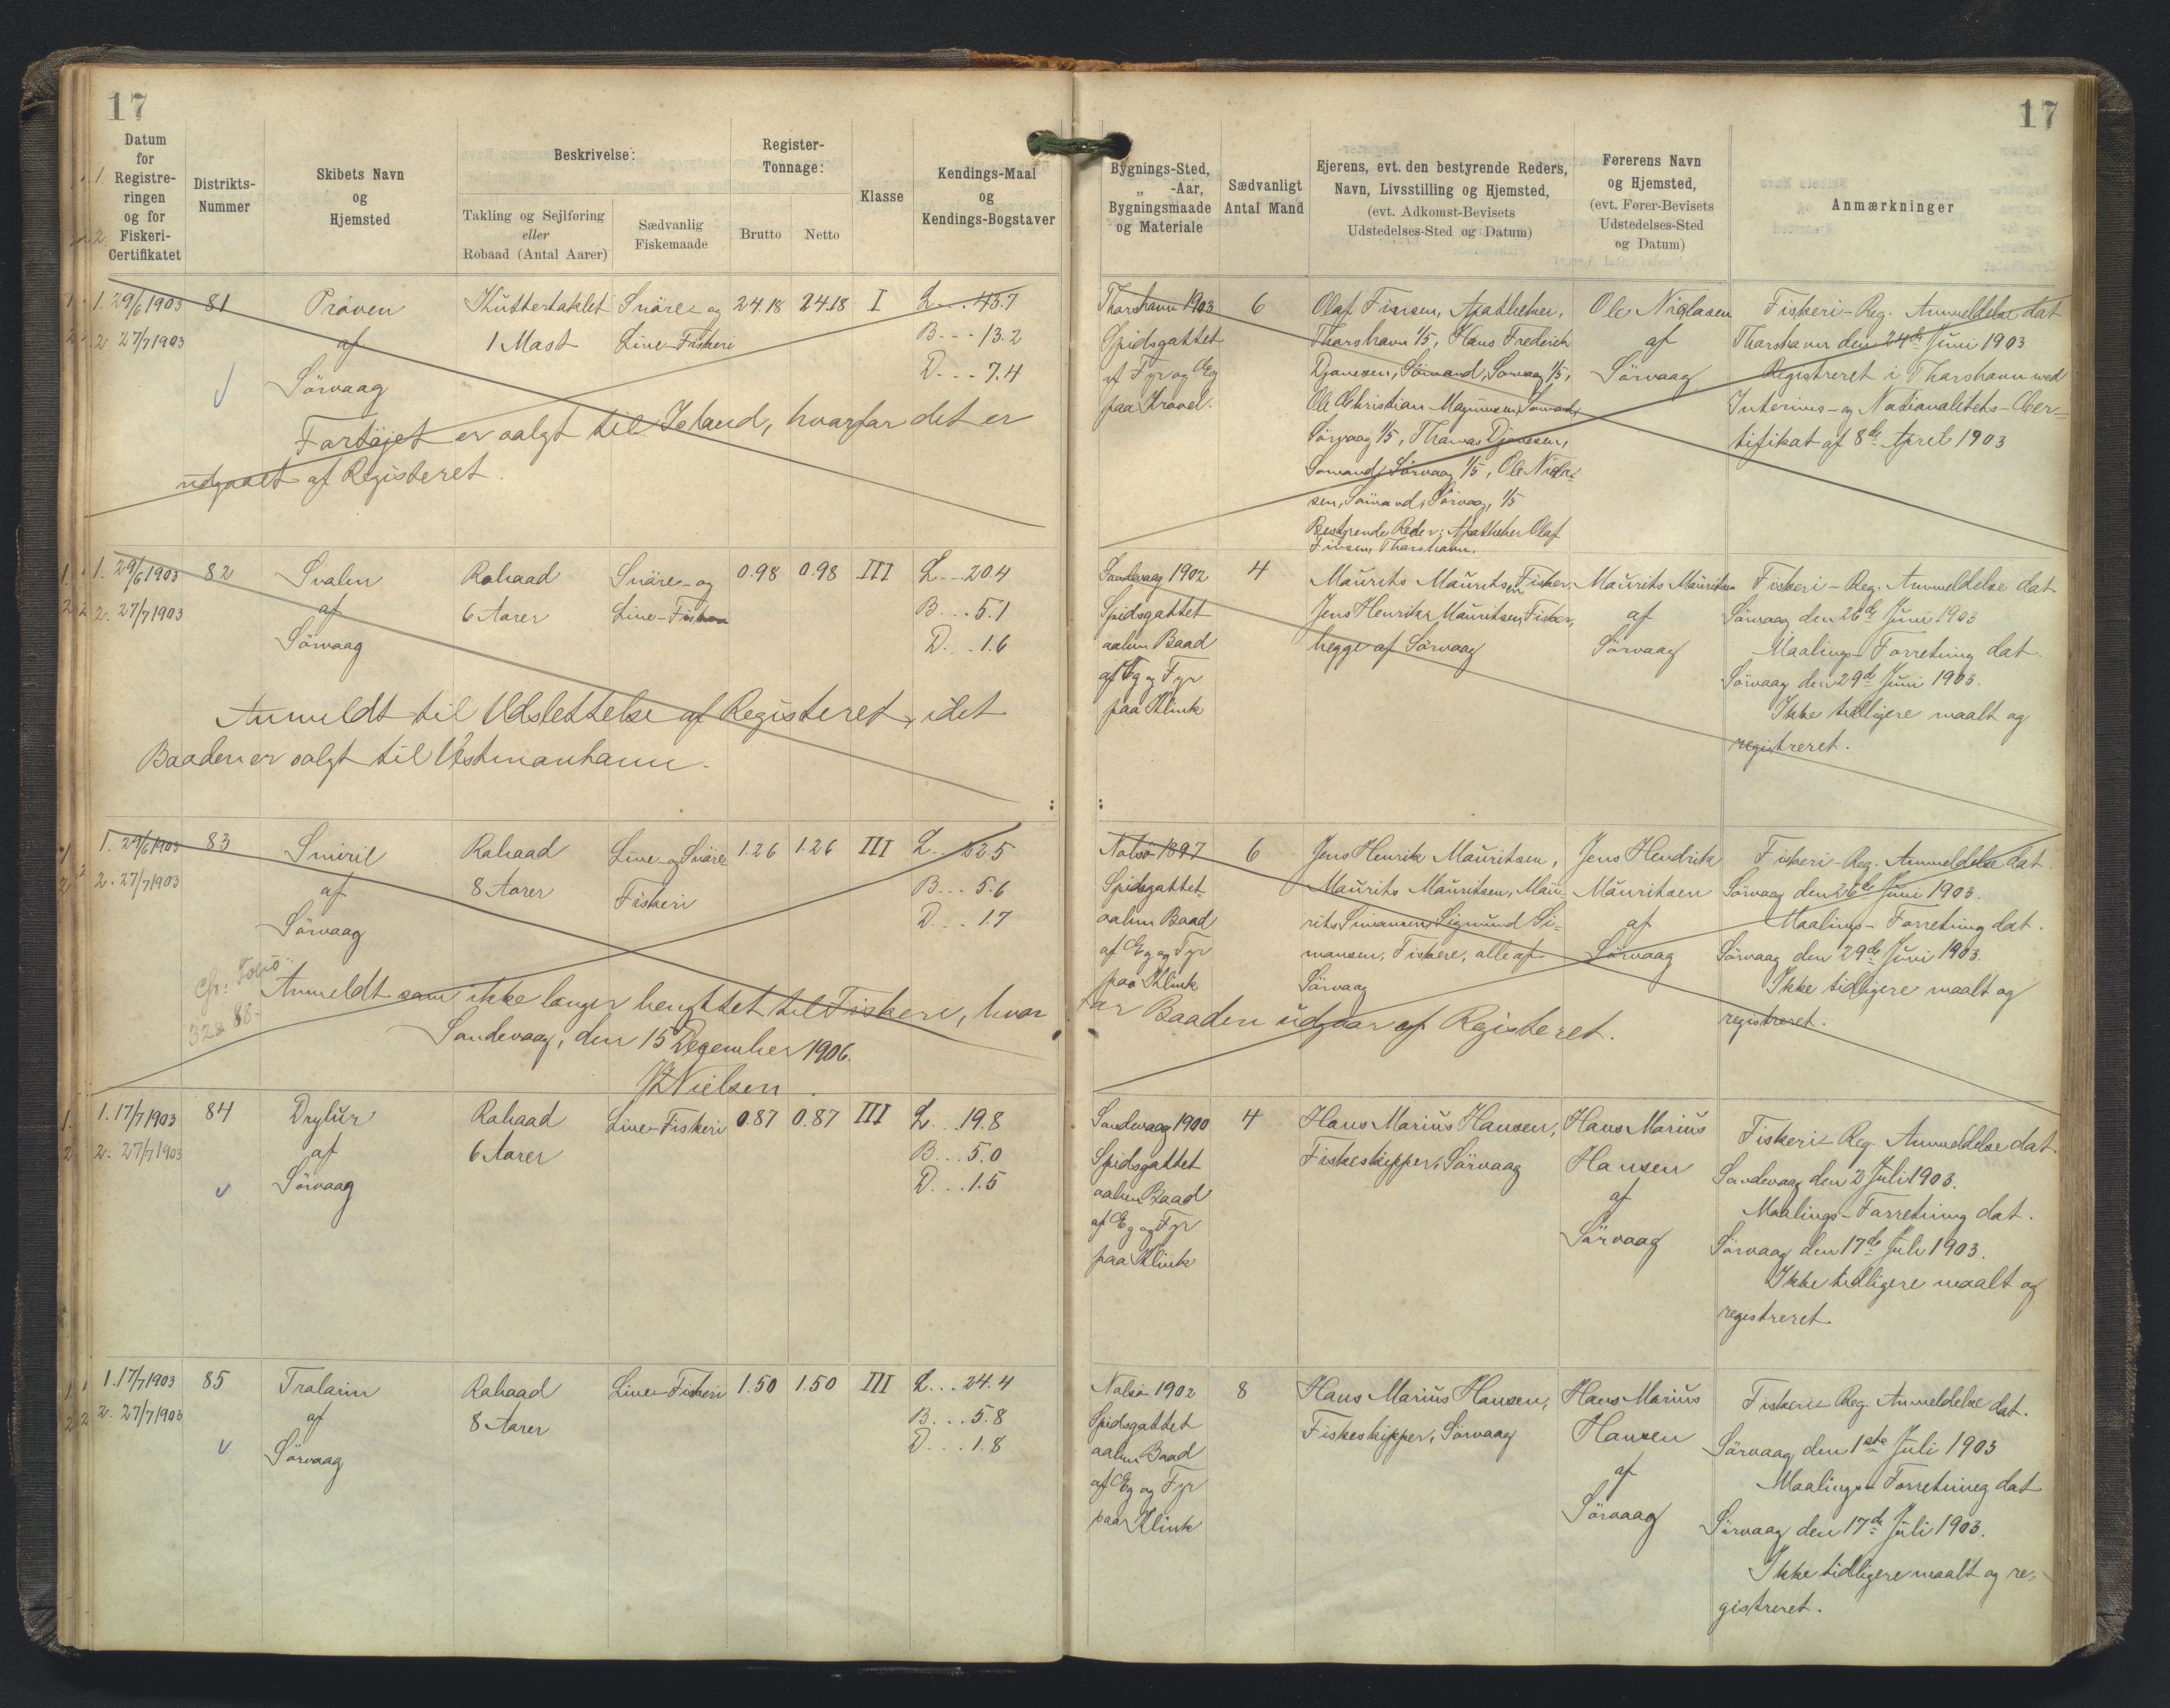 17
17
Datum
for
Registre-
ringen
og for
Fiskeri-
Certifikatet
Distrikts-
Nummer
Skibets Navn
og
Hjemsted
Beskrivelse:
Takling og Sejlføring
eller
Robaad (Antal Aarer)
Sædvanlig
Fiskemaade
Register-
Tonnage:
Brutto
Netto
Klasse
Kendings-Maal
og
Kendings-Bogstaver
Bygnings-Sted,
„ -Aar,
Bygningsmaade
og Materiale
Sædvanligt
Antal Mand
Ejerens, evt. den bestyrende Reders,
Navn, Livsstilling og Hjemsted,
(evt. Adkomst-Bevisets
Udstedelses-Sted og Datum)
Førerens Navn
og Hjemsted,
(evt. Fører-Bevisets
Udstedelses-Sted
og Datum)
Anmærkninger
1. 29/6 1903
2. 27/7 1903
81
Pröven
af
Sörvaag
Kuttertaklet
1 Mast
Snöre- og
Line-Fiskeri
24.18
24.18
I
L...43.7
B...13.2
D...7.4
Thorshavn 1903
Spidsgattet
af Fyr og Eg
paa Kravel.
6
Olaf Finsen, Apotheker,
Thorshavn 1/5, Hans Frederich
Djonesen, Sömand, Sörvaag 1/5,
Ole Christian Magnussen, Sömand,
Sörvaag 1/5, Thomas Djonesen,
Sömand, Sörvaag 1/5, Ole Nicla-
sen, Sömand, Sörvaag, 1/5
Bestyrende Reder: Apotheker Olaf
Finsen, Thorshavn.
Ole Niclasen
af
Sörvaag
Fiskeri-Reg. Anmeldelse dat
Thorshavn den 24de Juni 1903
Registreret i Thorshavn med
Interims- og Nationalitets-Cer-
tifikat af 8de April 1903
Fartöjet er solgt til Island, hvorfor det er
udgaaet af Registeret.
1. 29/6 1903
2. 27/7 1903
82
Svalen
af
Sörvaag
Robaad
6 Aarer
Snöre- og
Line-Fiskeri
0.98
0.98
III
L...20.4
B...5.1
D...1.6
Sandevaag 1902
Spidsgattet
aaben Baad
af Eg og Fyr
paa Klink
4
Maurits Mauritsen, Fisker,
Jens Henrik Mauritsen, Fisker,
begge af Sörvaag
Maurits Mauritsen
af
Sörvaag
Fiskeri-Reg. Anmeldelse dat.
Sörvaag den 26de Juni 1903
Maalings-Forretning dat.
Sörvaag den 29de Juni 1903.
Ikke tidligere maalt og
registreret.
Anmeldt til Udslettelse af Registeret, idet
Baaden er solgt til Vestmanhavn.
1. 29/6 1903
2. 27/7 1903
83
Smiril
af
Sörvaag
Robaad
8 Aarer
Line- og Snöre
Fiskeri
1.26
1.26
III
L...22.5
B...5.6
D...1.7
Nolsö 1897
Spidsgattet
aaben Baad
af Eg og Fyr
paa Klink
6
Jens Henrik Mauritsen,
Maurits Mauritsen, Mau-
rits Simonsen, Sigmund Si-
monsen, Fiskere, alle af
Sörvaag
Jens Hendrik
Mauritsen
af
Sörvaag
Fiskeri-Reg. Anmeldelse dat.
Sörvaag den 26de Juni 1903.
Maalings-Forretning dat.
Sörvaag den 29de Juni 1903.
Ikke tidligere maalt og
registreret.
Cfr. Folio
Anmeldt som ikke længer benyttet til Fiskeri, hvor
for Baaden udgaar af Registeret.
Sandevaag, den 15 December 1906.
Nielsen
1. 17/7 1903
2. 27/7 1903
84
Drylur
af
Sörvaag
Robaad
6 Aarer
Line-Fiskeri
0.87
0.87
III
L...19.8
B...5.0
D...1.5
Sandevaag 1900
Spidsgattet
aaben Baad
af Eg og Fyr
paa Klink
4
Hans Marius Hansen,
Fiskeskipper, Sörvaag
Hans Marius
Hansen
af
Sörvaag
Fiskeri-Reg. Anmeldelse dat.
Sandevaag den 2 Juli 1903.
Maalings-Forretning dat.
Sörvaag den 17de Juli 1903.
Ikke tidligere maalt og
registreret
1. 17/7 1903
2. 27/7 1903
85
Tralarin
af
Sörvaag
Robaad
8 Aarer
Line-Fiskeri
1.50
1.50
III
L...24.4
B...5.8
D...1.8
Nolsö 1902
Spidsgattet
aaben Baad
af Eg og Fyr
paa Klink
8
Hans Marius Hansen,
Fiskeskipper, Sörvaag
Hans Marius
Hansen
af
Sörvaag
Fiskeri-Reg. Anmeldelse dat.
Sörvaag den 1ste Juli 1903
Maalings-Forretning dat
Sörvaag den 17de Juli 1903.
Ikke tidligere maalt og re-
gistreret.